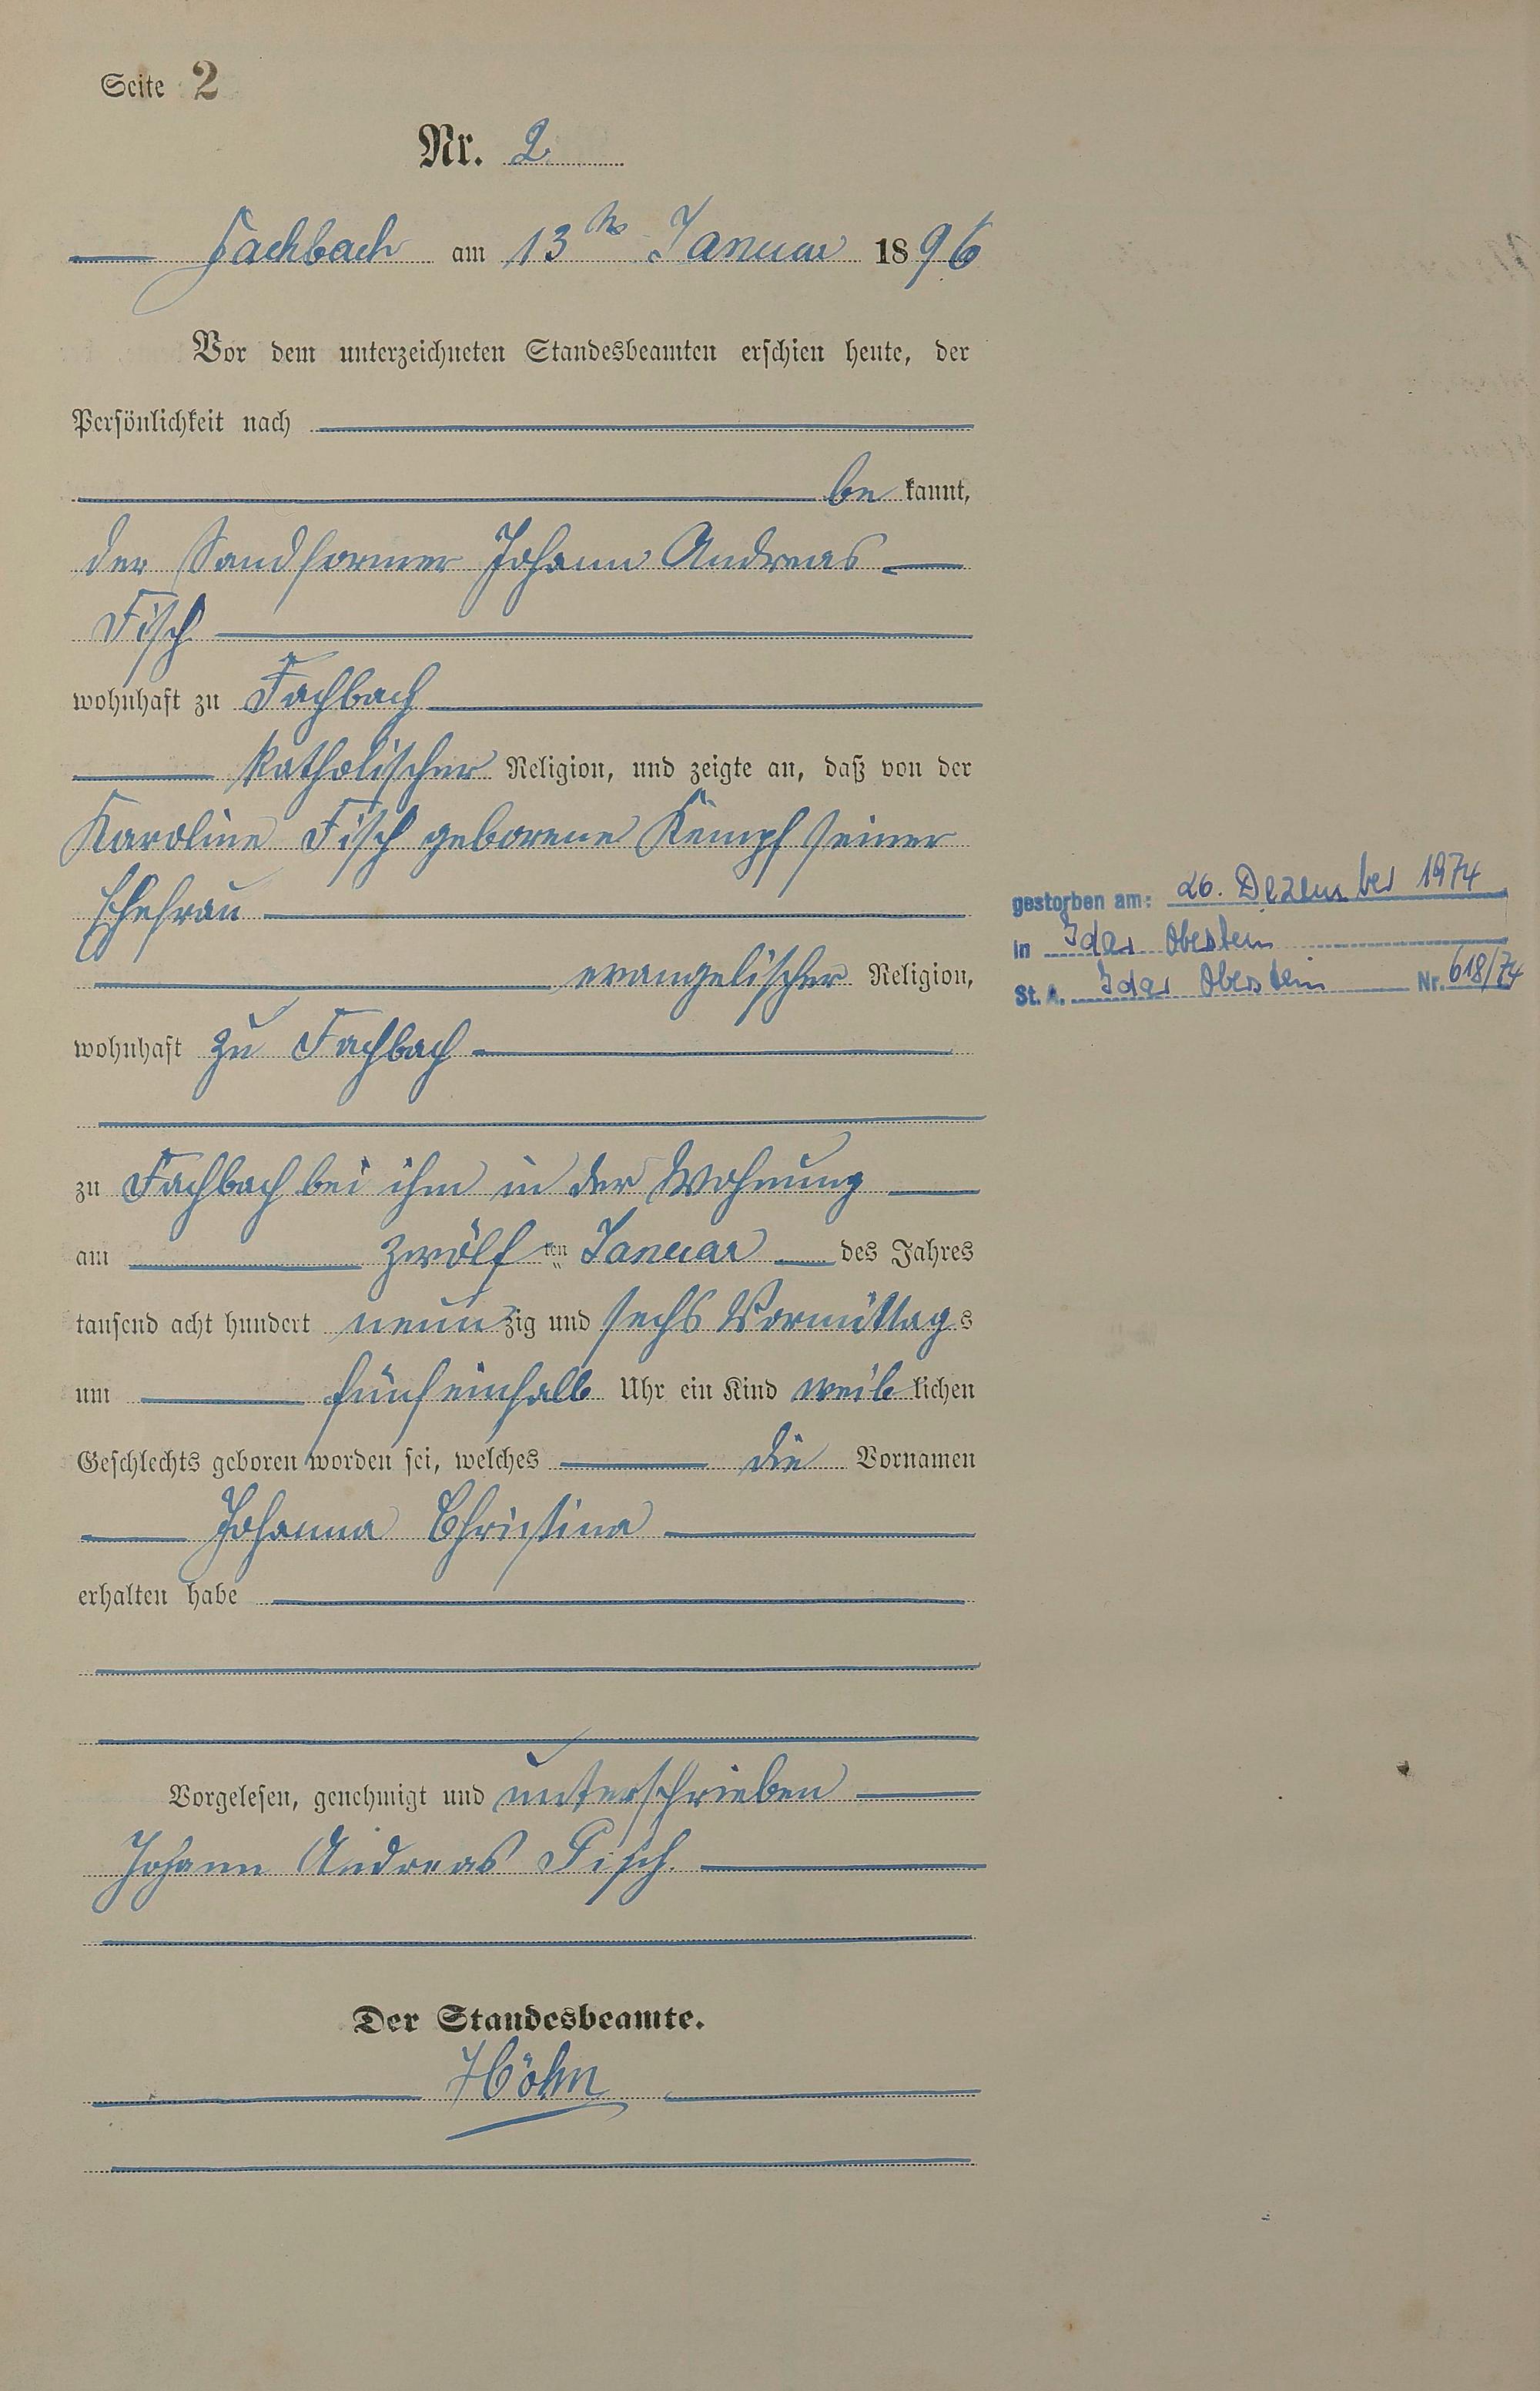 Seite 2
Nr. 2
Fachbach am 13ten Januar 1896
Vor dem unterzeichneten Standesbeamten erschien heute, der
Persönlichkeit nach
be kannt,
der Sandformer Johann Andreas
Fisch
wohnhaft zu Fachbach
katholischer Religion, und zeigte an, daß von der
Karoline Fisch geborene Kempf seiner
Ehefrau
evangelischer Religion,
wohnhaft zu Fachbach
zu Fachbach bei ihm in der Wohnung
am zwölf ten Januar des Jahres
tausend acht hundert neun zig und sechs Vormittag s
um fünfeinhalb Uhr ein Kind weib lichen
Geschlechts geboren worden sei, welches die Vornamen
Johanna Christina
erhalten habe
Vorgelesen, genehmigt und unterschrieben
Johann Andreas Fisch.
Der Standesbeamte.
Höhn
gestorben am: 26. Dezember 1974
in Idar Oberstein
St. A. Idar Oberstein Nr. 618/74